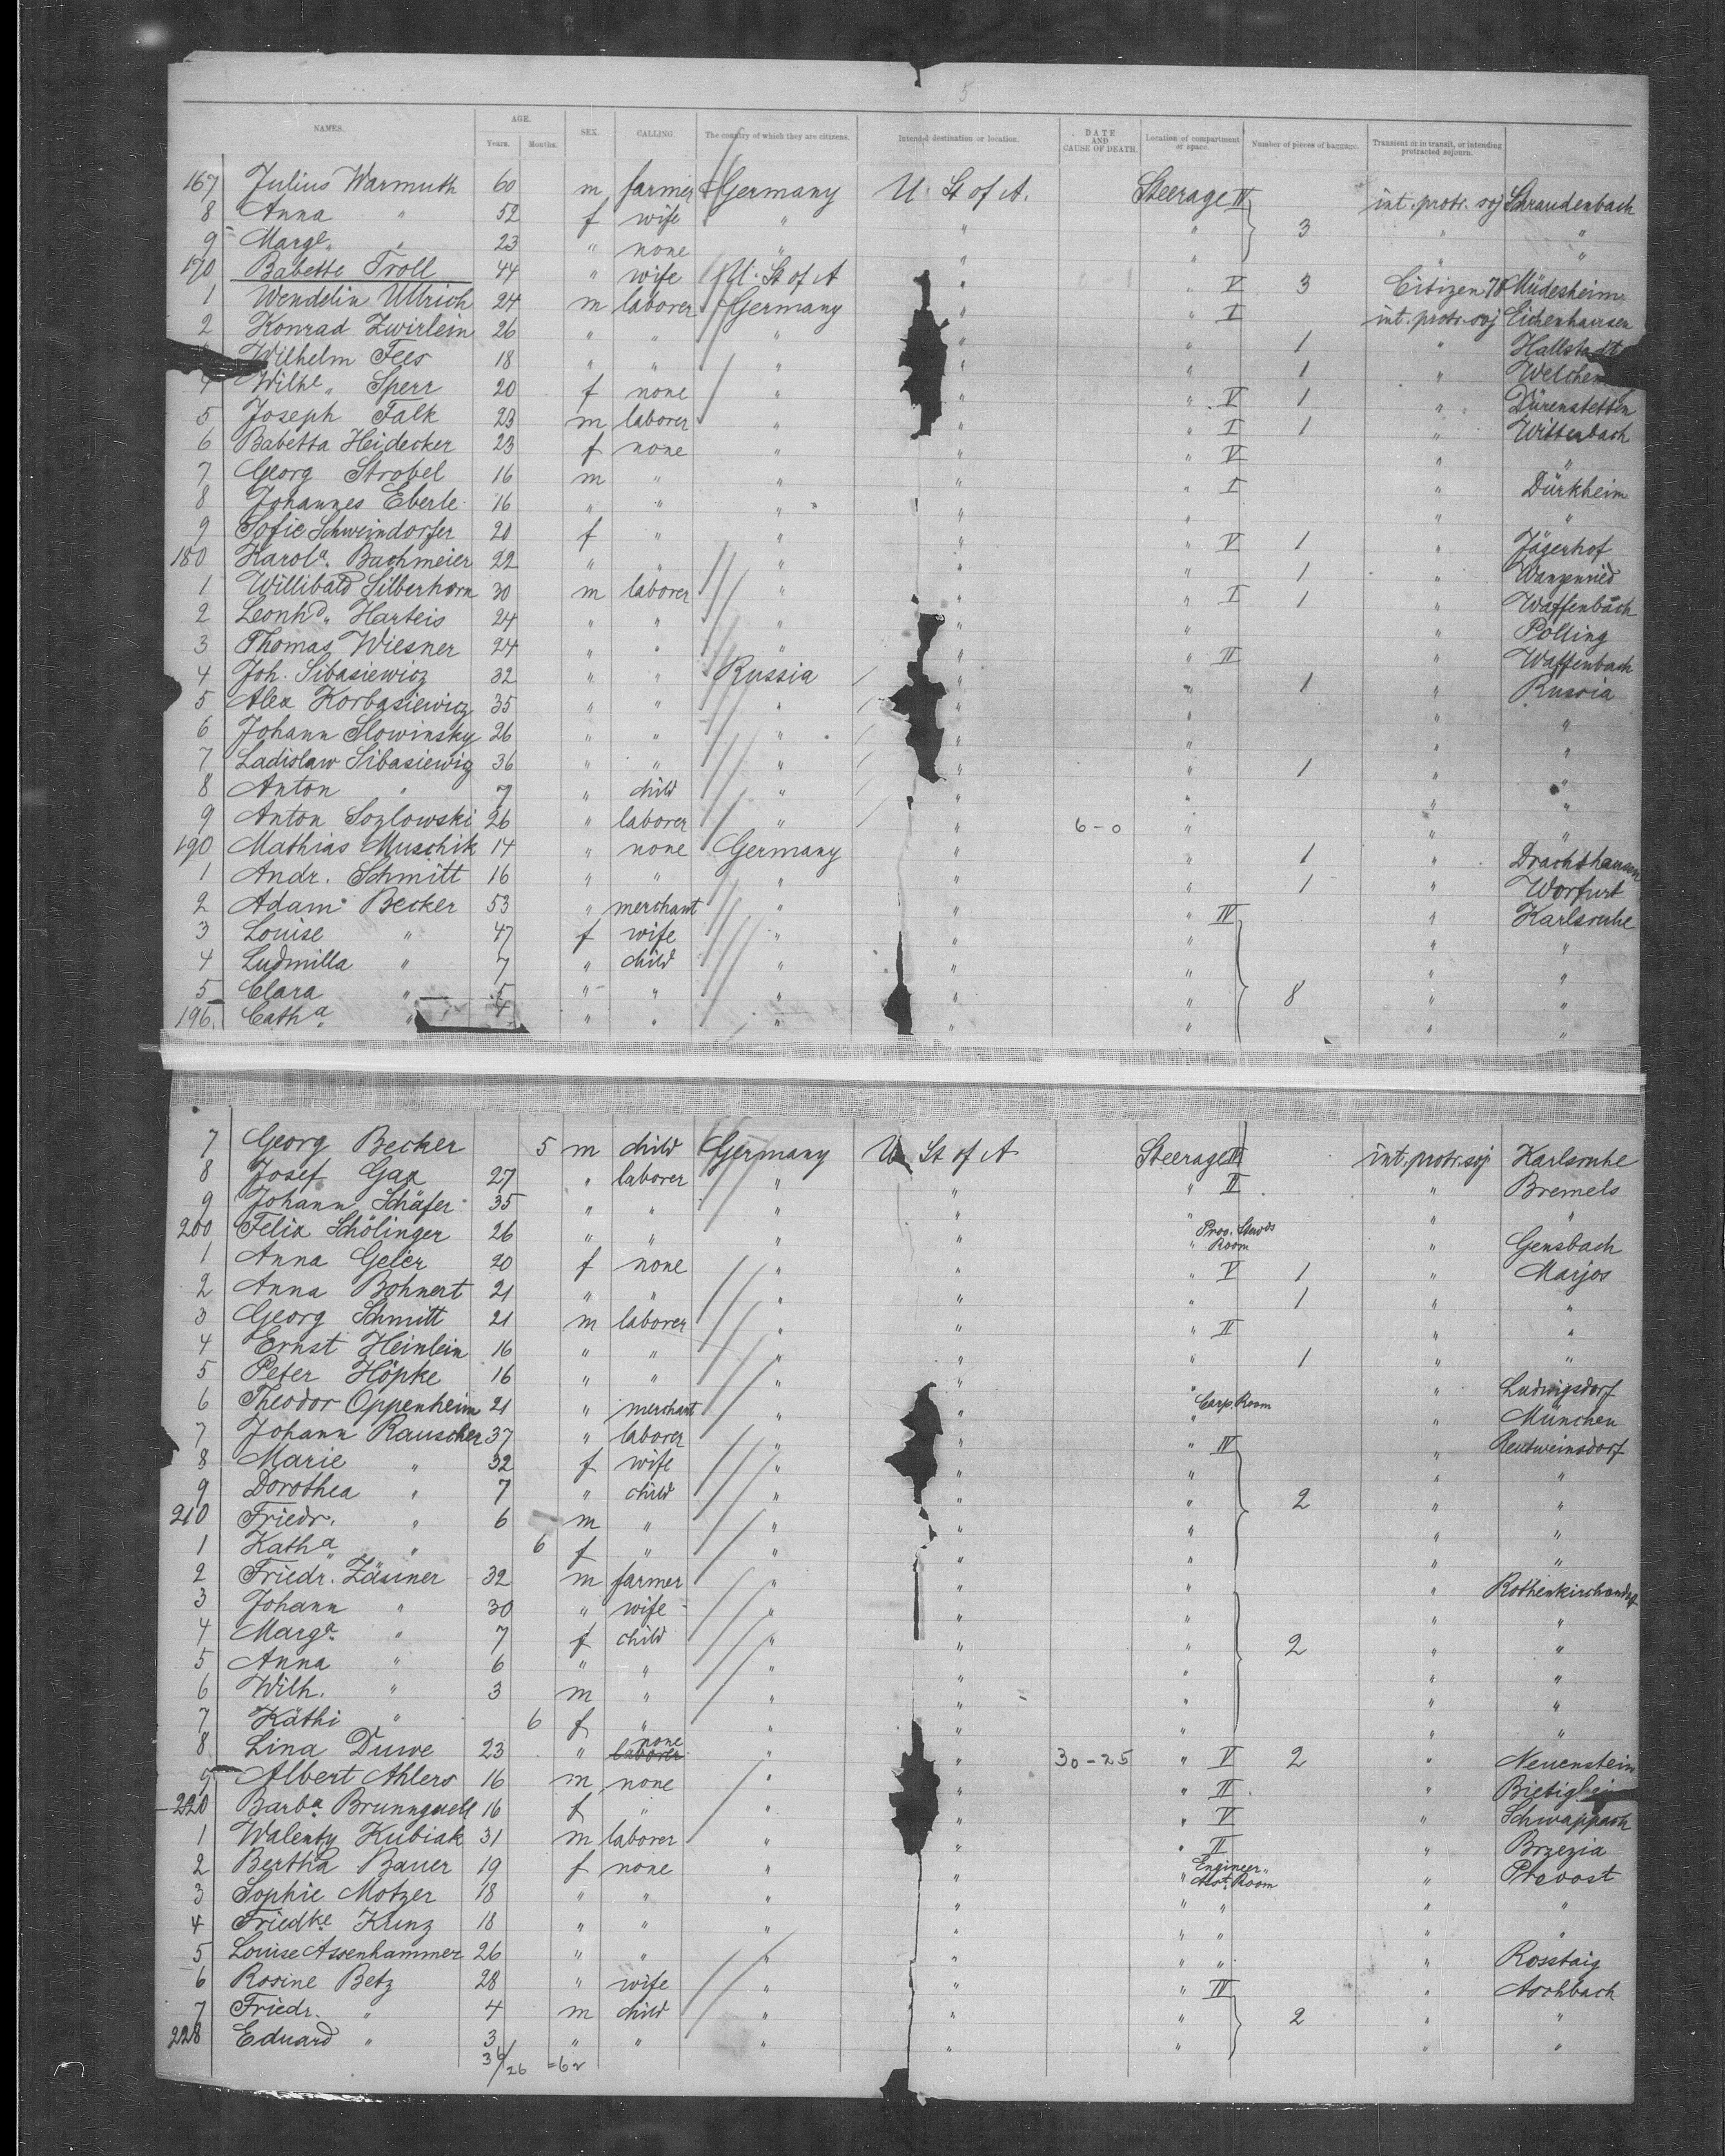 5
NAMES. AGE. Years. Months. SEX. CALLING. The country of which they are citizens. Intended destination or location. DATE AND CAUSE OF DEATH. Location of compartment or space. Number of pieces of baggage. Transient or in transit, or intending protracted sojourn.
167 Julius Warmuth 60 m farmer Germany U. St of A. Steerage IV int. protr. soj Schraudenbach
8 Anna " 52 f wife " " " 3 " "
9 Marge. " 23 " none " " " " "
170 Babette Troll 44 " wife U. St of A " " V 3 Citizen 70 Müdesheim
1 Wendelin Ullrich 24 m laborer Germany " " I int. protr. soj Eichenhausen
2 Konrad Zwirlein 26 " " " " " 1 " Hallstadt
Wilhelm Fees 18 " " " " " 1 "
4 Wilhe. Sperr 20 f none " " V 1 " Dürenstetten
5 Joseph Falk 23 m laborer " " " I 1 " Wittenbach
6 Babetta Heidecker 23 f none " " " V " "
7 Georg Strobel 16 m " " " " I " Dürkheim
8 Johannes Eberle 16 " " " " " " "
9 Sofie Schweindorfer 20 f " " " " V 1 " Jägerhof
180 Karola. Bachmeier 22 " " " " " 1 "
1 Willibald Silberhorn 30 m laborer " " " I 1 " Waffenbach
2 Leonhd. Harteis 24 " " " " " Polling
3 Thomas Wiesner 24 " " " " " II " Waffenbach
4 Joh. Sibasiewicz 32 " " Russia " " 1 " Russia
5 Alex Korbasiewicz 35 " " " " " " "
6 Johann Slowinsky 26 " " " " " " "
7 Ladislaw Sibasiewicz 36 " " " " " 1 " "
8 Anton " 7 " child " " " " "
9 Anton Sozlowski 26 " laborer " " 6-0 " " "
190 Mathias Muschik 14 " none Germany " " 1 " Drachthausen
1 Andr. Schmitt 16 " " " " " 1 " Worfurt
2 Adam Becker 53 " merchant " " " IV " Karlsruhe
3 Louise " 47 f wife " " " " "
4 Ludmilla " 7 " child " " " " "
5 Clara " 5 " " " " " 8 " "
196. Catha " 4 " " " " " " "
7 Georg Becker 5 m child Germany U St of A Steerage IV int. protr. soj Karlsruhe
8 Josef Gax 27 " laborer " " " II " Bremels
9 Johann Schäfer 35 " " " " " " "
200 Felix Schölinger 26 " " " " " Prov. Stwds Room " Gensbach
1 Anna Geier 20 f none " " " V 1 " Marjos
2 Anna Bohnert 21 " " " " " 1 " "
3 Georg Schmitt 21 m laborer " " " II " "
4 Ernst Heinlein 16 " " " " " 1 " "
5 Peter Höpke 16 " " " " " " Ludwigsdorf
6 Theodor Oppenheim 21 " merchant " " " Carp. Room " München
7 Johann Rauscher 37 " laborer " " " IV " Rentweinsdorf
8 Marie " 32 f wife " " " " "
9 Dorothea " 7 " child " " " 2 " "
210 Friedr. " 6 m " " " " " "
1 Katha " 6 f " " " " " "
2 Friedr. Zäuner 32 m farmer " " " " Rothenkirchendorf
3 Johann " 30 " wife " " " " "
4 Marga. " 7 f child " " " 2 " "
5 Anna " 6 " " " " " " "
6 Wilh. " 3 m " " " " " "
7 Käthi " 6 f " " " " " "
8 Lina Duwe 23 " laborer none " " 30-25 " V 2 " Neuenstein
9 Albert Ahlers 16 m none " " " II " Bietigheim
220 Barba. Brunnquell 16 f " " " " V " Schwappach
1 Walenty Kubiak 31 m laborer " " " II " Brzezia
2 Bertha Bauer 19 f none " " " Engineer " Asst. Room " Prevost
3 Sophie Motzer 18 " " " " " " " "
4 Friedke Kunz 18 " " " " " " " "
5 Louise Assenhammer 26 " " " " " " " Rosstaig
6 Rosine Betz 28 " wife " " " IV " Aschbach
7 Friedr. " 4 m child " " " 2 " "
228 Eduard " 3 " " " " " " "
36/26 =62